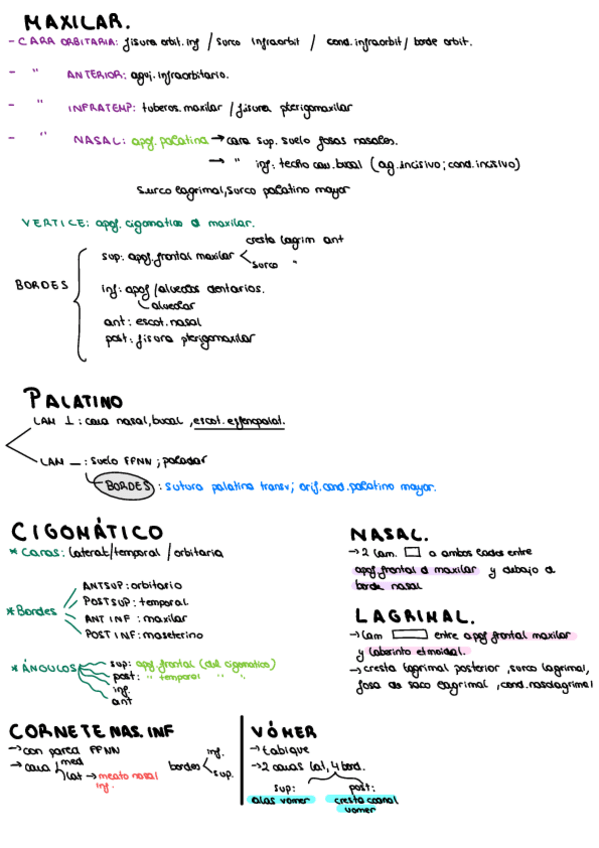 MAXILAR.
- CARA ORBITARIA: fisura orbit. inf / surco infraorbit / cond. infraorbit / borde orbit.
- " ANTERIOR: aguj. infraorbitario.
- " INFRATEMP: tuberos. maxilar / fisura pterigomaxilar
- " NASAL: apof. palatina → cara sup. suelo fosas nasales.
→ " inf: techo cav. bucal (ag. incisivo; cond. incisivo)
surco lagrimal, surco palatino mayor
VERTICE: apof. cigomatica d maxilar.
cresta lagrim ant
sup: apof. frontal maxilar
surco "
BORDES
inf: apof / alveolos dentarios.
alveolar
ant: escot. nasal
post: fisura pterigomaxilar
PALATINO
LAM ⊥: cara nasal, bucal, escot. esfenopalat.
LAM —: suelo FFNN; paladar
BORDES: sutura palatina transv; orif. cond. palatino mayor.
CIGOMÁTICO
* Caras: lateral / temporal / orbitaria
ANTSUP: orbitario
POSTSUP: temporal
* Bordes
ANT INF: maxilar
POST INF: maseterino
* ÁNGULOS
sup: apof. frontal (del cigomatico)
post: " temporal " "
inf.
ant
NASAL.
→ 2 lam. a ambos lados entre
apof. frontal d maxilar y debajo d
borde nasal
LAGRIMAL.
→ lam entre apof frontal maxilar
y laberinto etmoidal.
→ cresta lagrimal posterior, surco lagrimal,
fosa de saco lagrimal, cond. nasolagrimal
CORNETE NAS. INF
→ con pared FFNN
→ cara med
lat → meato nasal
inf.
bordes inf.
sup.
VÓMER
→ tabique
→ 2 caras lat, 4 bord.
sup: post:
alas vomer cresta coanal
vomer